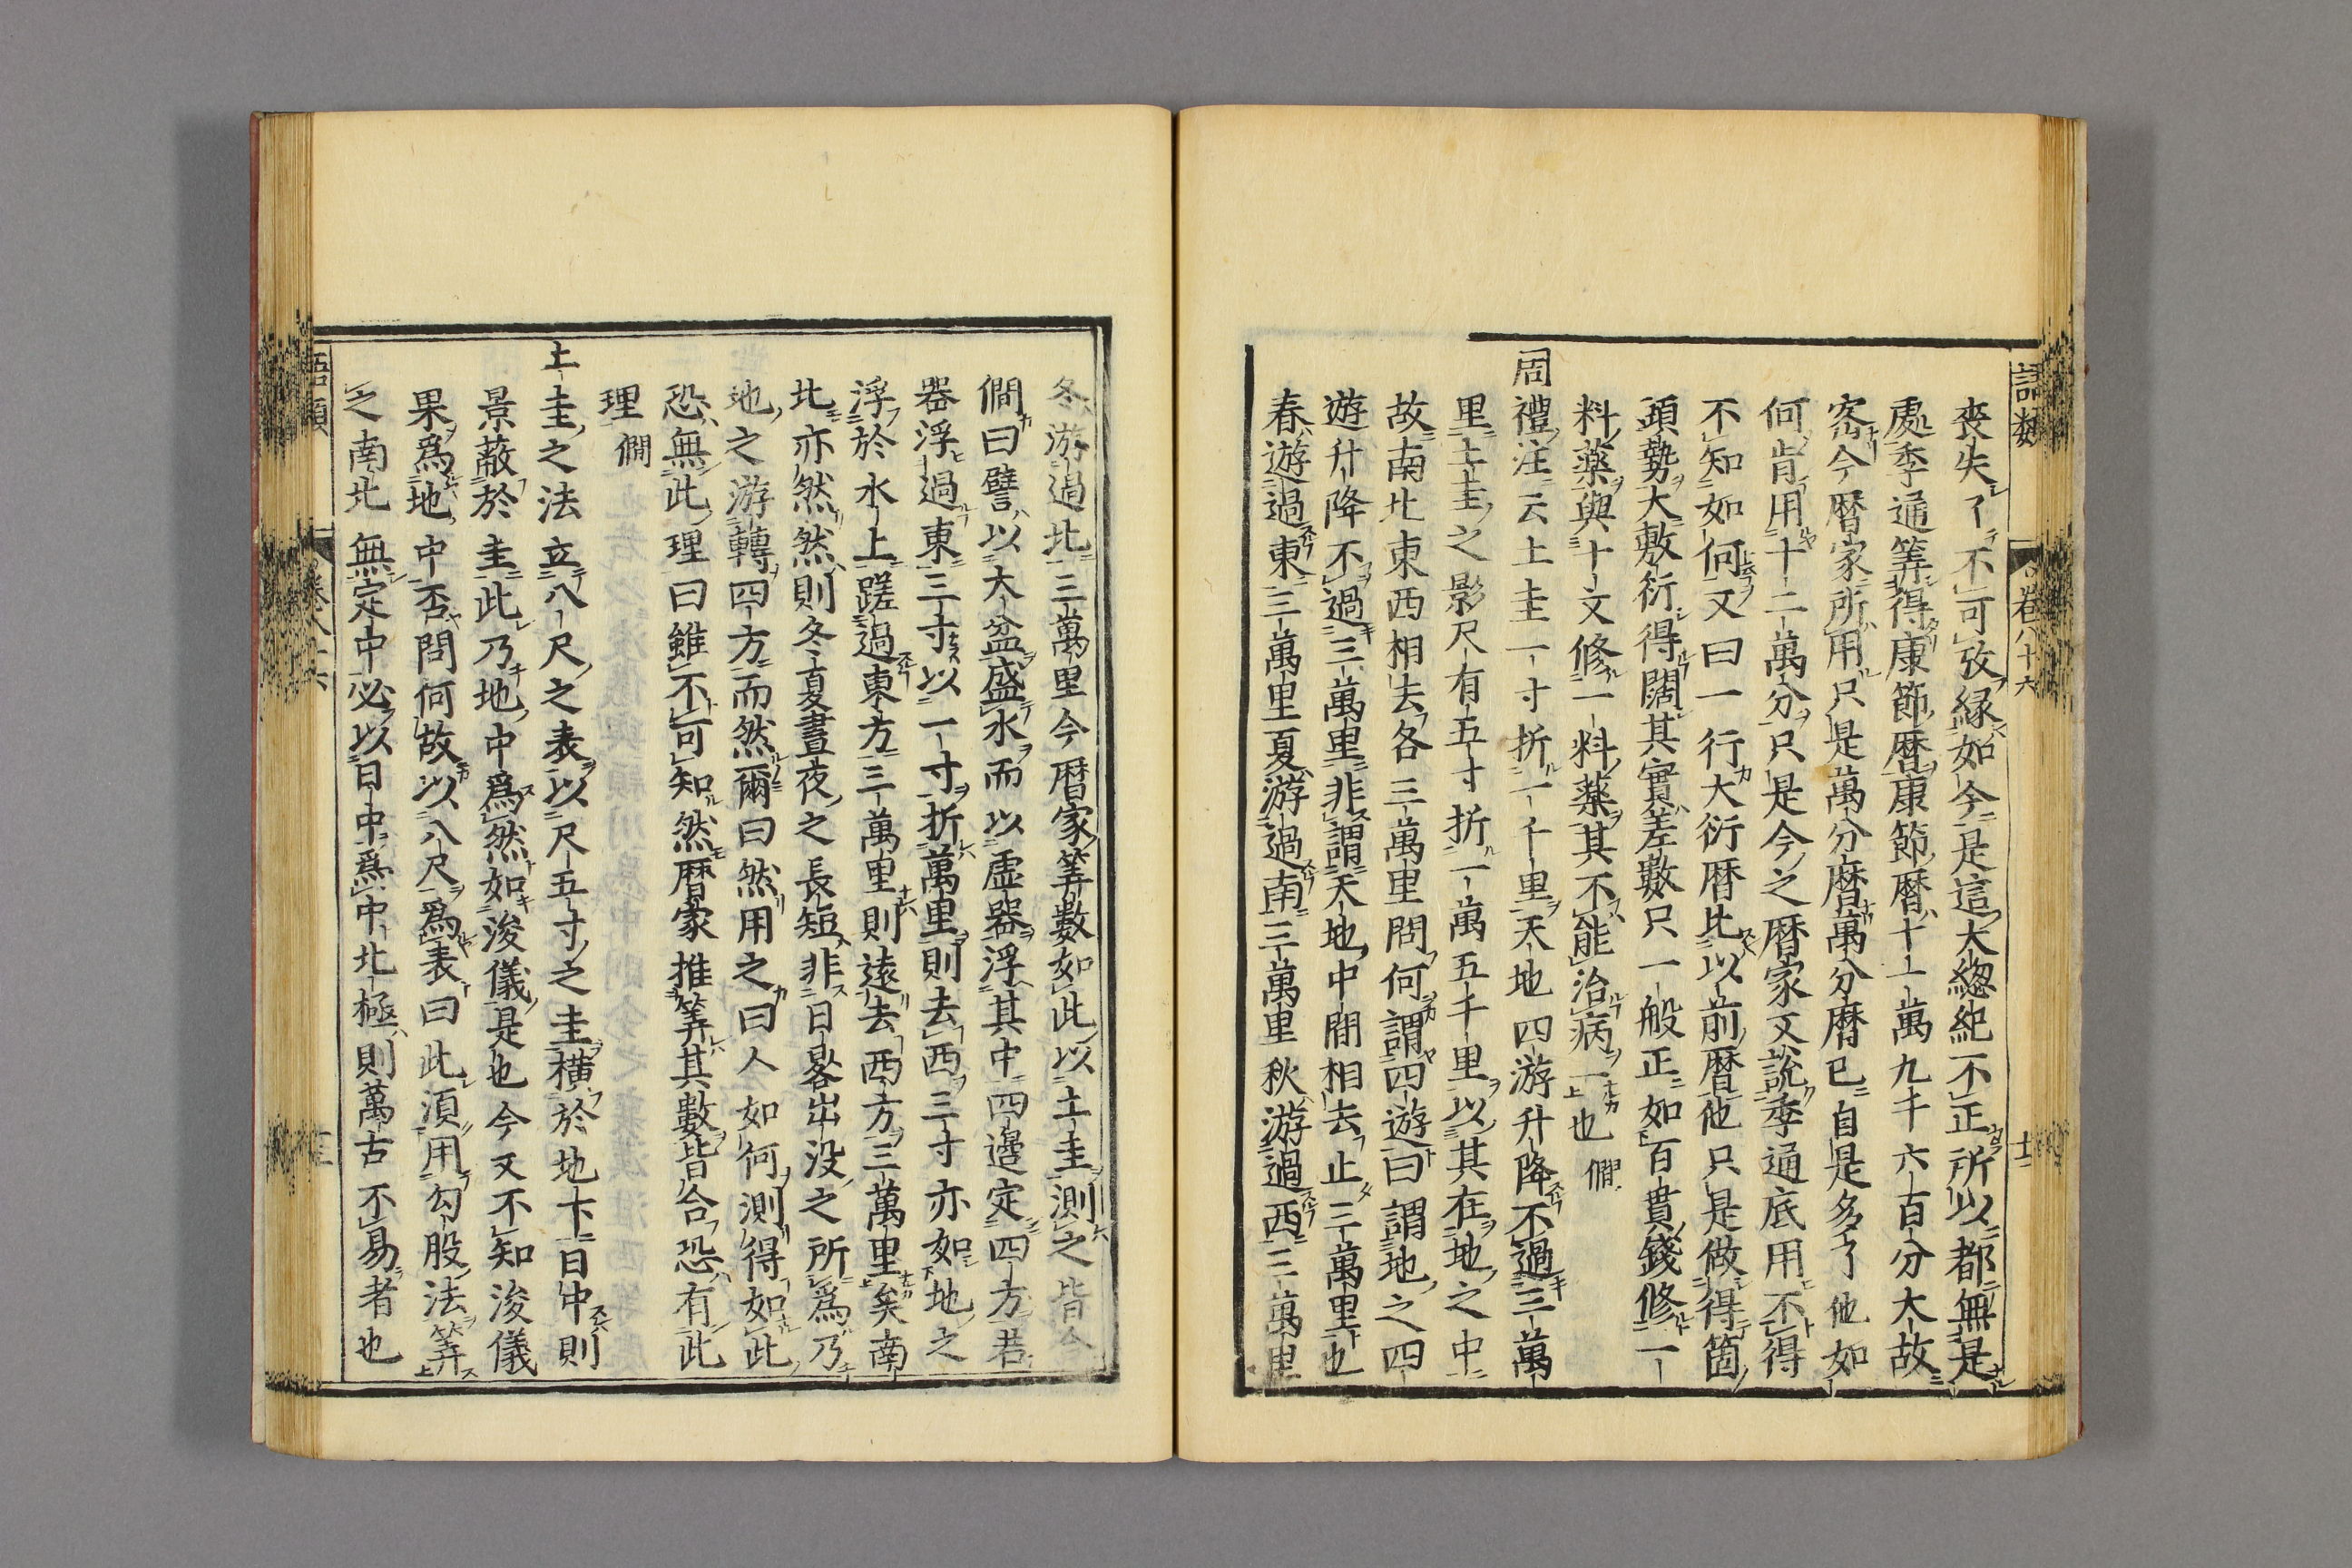 語類
卷八十六
十二
喪失了不可攷緣如今是這大總紀不正所以都無是
處季通筭得康節曆康節曆十二萬九千六百分大故
密今曆家所用只是萬分曆萬分曆已自是多了他如
何肯用十二萬分只是今之曆家又說季通底用不得
不知如何又曰一行大衍曆比以前曆他只是做得箇
頭勢大敷衍得闊其實差數只一般正如百貫錢修一
料藥與十文修一料藥其不能治病一也 僩
周禮注云土圭一寸折一千里天地四游升降不過三萬
里土圭之影尺有五寸折一萬五千里以其在地之中
故南北東西相去各三萬里問何謂四遊曰謂地之四
遊升降不過三萬里非謂天地中間相去止三萬里也
春遊過東三萬里夏游過南三萬里秋游過西三萬里
冬游過北三萬里今曆家筭數如此以土圭測之皆合
僩曰譬以大盆盛水而以虛器浮其中四邊定四方若
器浮過東三寸以一寸折萬里則去西三寸亦如地之
浮於水上蹉過東方三萬里則遠去西方三萬里矣南
北亦然然則冬夏晝夜之長短非日晷出沒之所爲乃
地之游轉四方而然爾曰然用之曰人如何測得如此
恐無此理曰雖不可知然曆家推筭其數皆合恐有此
理 僩
土圭之法立八尺之表以尺五寸之圭橫於地下日中則
景蔽於圭此乃地中爲然如浚儀是也今又不知浚儀
果爲地中否問何故以八尺爲表曰此須用勾股法筭
之南北無定中必以日中爲中北極則萬古不易者也
語類
卷八十六